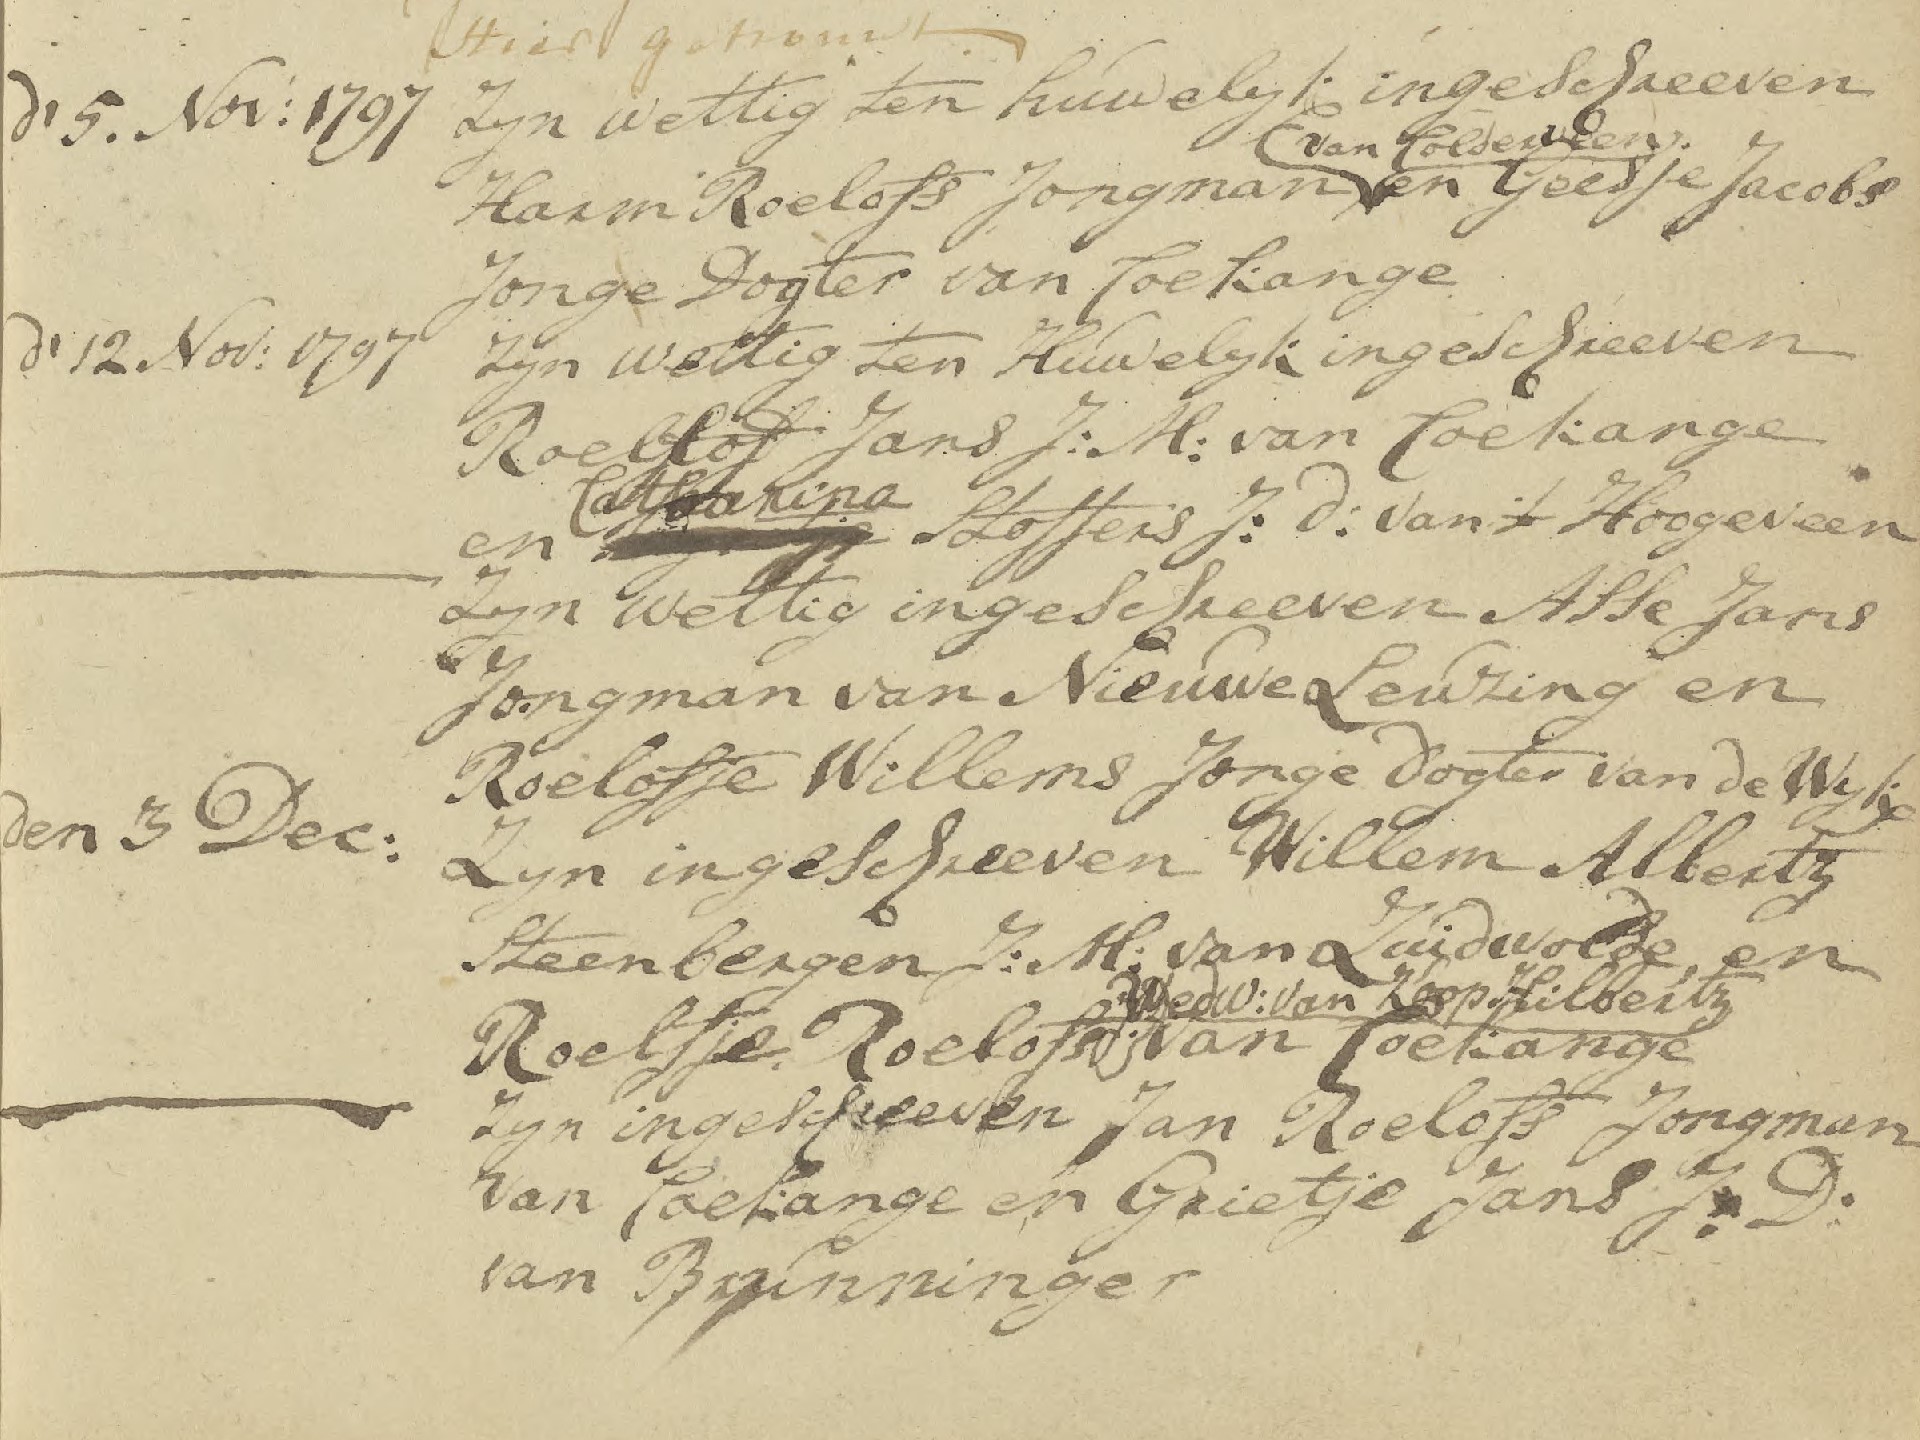 Hier getrouwt
d' 5. Nov: 1797 Zyn wettig ten huwelyk ingeschreeven
(van Colderveen).
Harm Roelofs Jongman en Geesje Jacobs
Jonge Dogter van Coekange
d' 12 Nov: 1797 Zyn wettig ten Huwelyk ingeschreeven
Roelof Jans J: M: van Coekange
Catharina
en Stoffers J: d: van 't Hoogeveen
Zyn wettig ingeschreeven Asse Jans
Jongman van Nieuwe Leuzing en
Roelofje Willems Jonge dogter van de Wyk
den 3 Dec: Zyn ingeschreeven Willem Albertz
Steenbergen J: M: van Zuidwolde en
Wedw: van Koop Hilbertz
Roelfje Roelofs van Coekange
Zyn ingeschreeven Jan Roelofs Jongman
van Coekange en Grietje Jans J: D:
van Brunninger